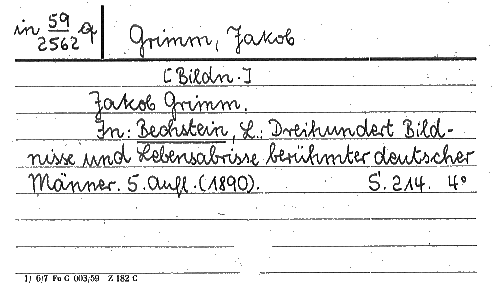 in 59/2562 Q Grimm, Jakob
[Bildn.]
Jakob Grimm.
In: Bechstein, L.: Dreihundert Bild-
nisse und Lebensabrisse berühmter deutscher
Männer. 5. Aufl. (1890). S. 214. 4°
1) 6/7 Fo G 003,59 Z 182 C